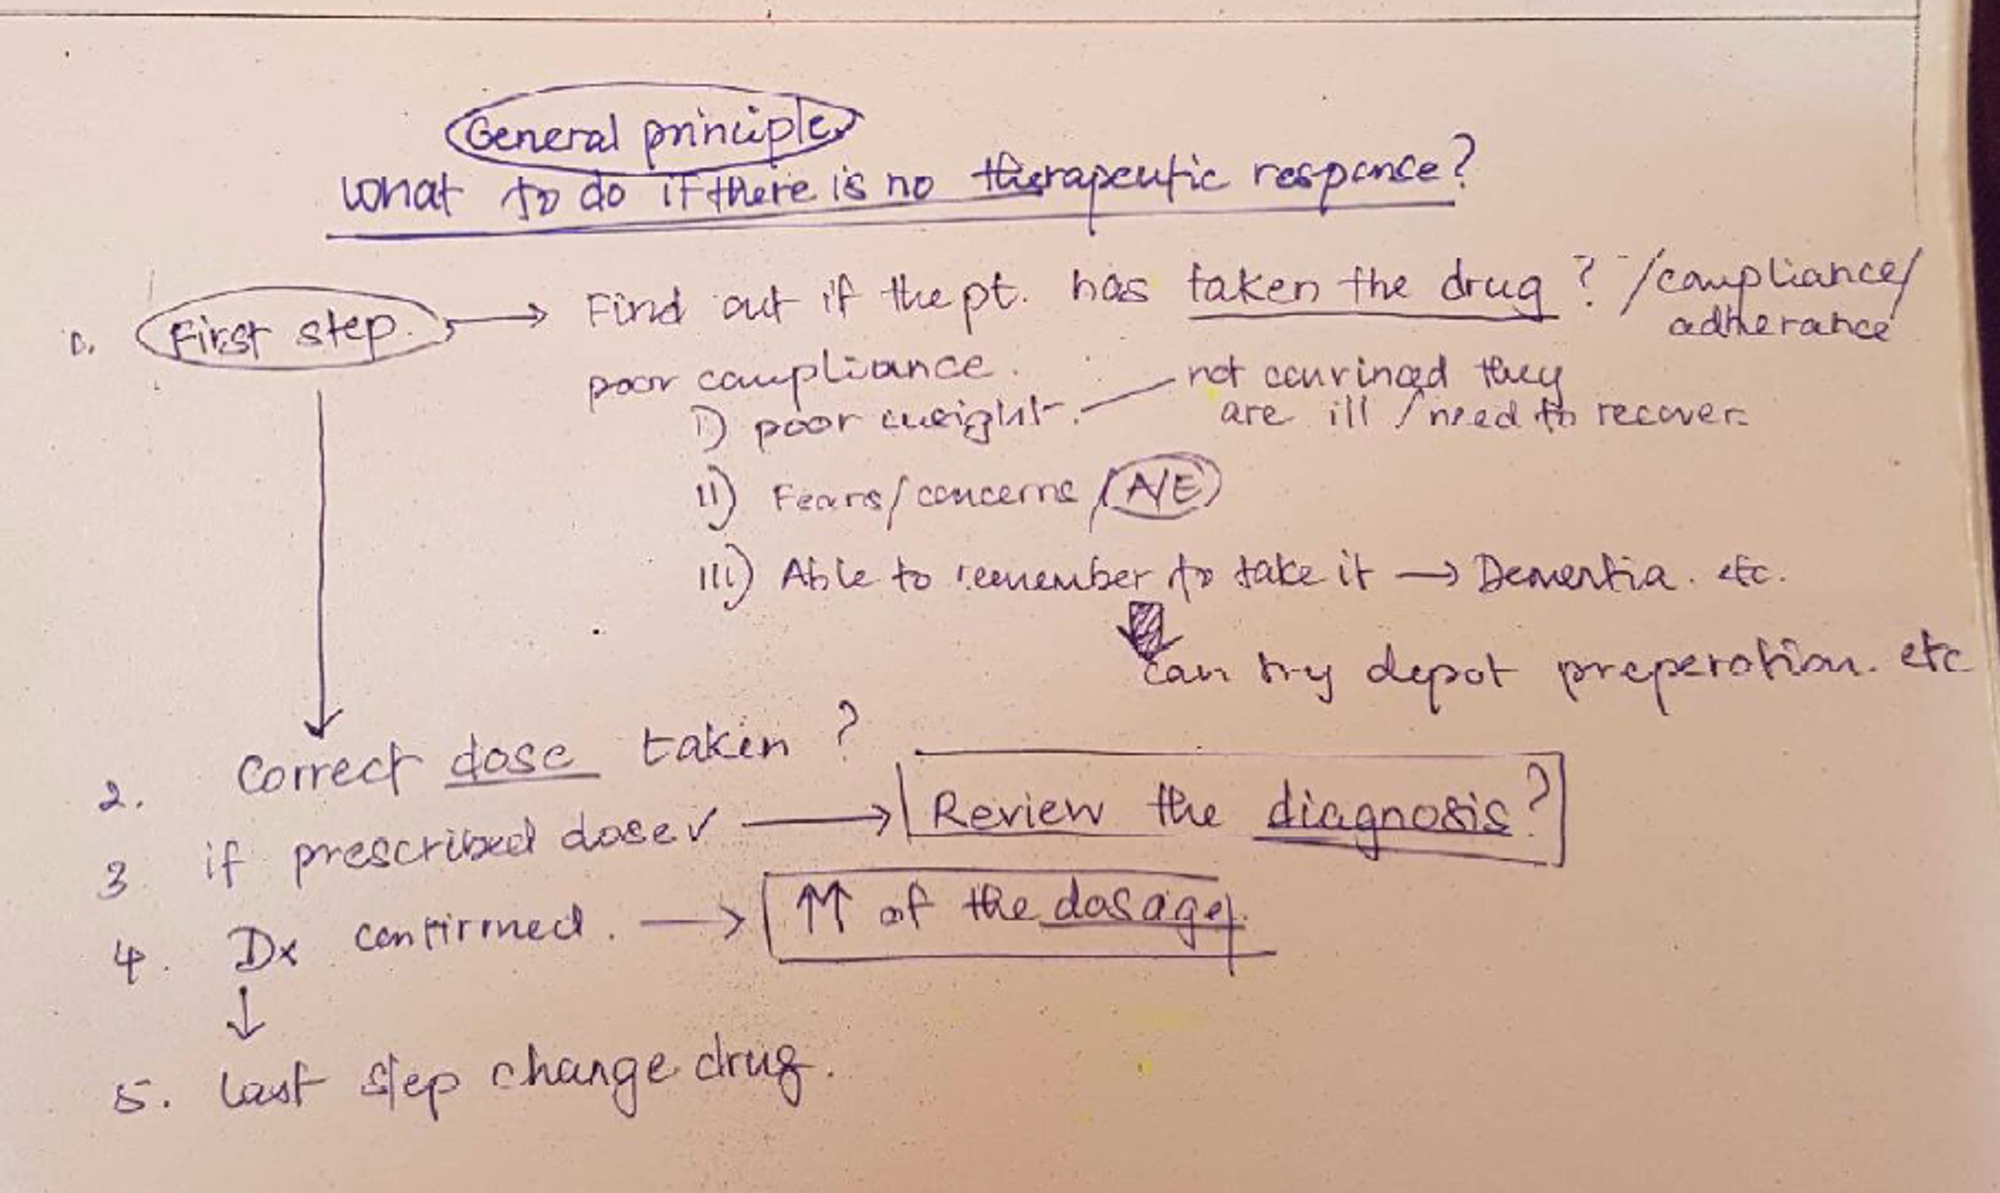 General principle
What to do if there is no therapeutic response?
First step. → Find out if the pt. has taken the drug ? /compliance/
adherance
poor compliance.
i) poor insight. — not convinced they
are ill / need to recover.
ii) Fears/concerns / A/E
iii) Able to remember to take it → Dementia. etc.
can try depot preperation. etc
2. Correct dose taken ?
3 if prescribed dose ✓ → Review the diagnosis?
4. Dx confirmed. → ↑↑ of the dosage.
↓
5. last step change drug.